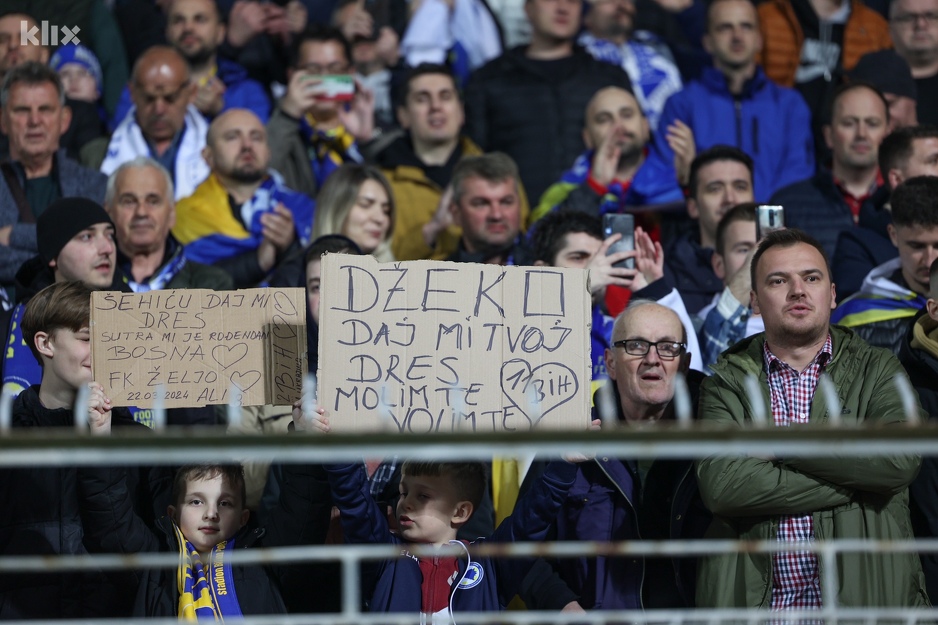 klix
ŠEHIĆU DAJ MI
DRES
SUTRA MI JE ROĐENDAN
BOSNA
FK ŽELJO
22.03.2024 ALI
BIH
DŽEKO
DAJ MI TVOJ
DRES
MOLIM TE
VOLIM TE
1 BIH
stadion